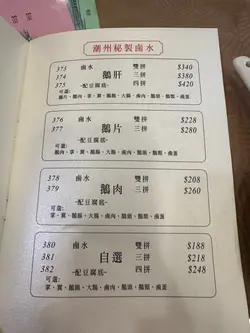 潮州秘製鹵水
373 鹵水 雙拼 $340
374 鵝肝 三拼 $380
375 -配豆腐底- 四拼 $420
可選:
鵝片、鵝腸、大腸、鹵肉、掌、翼、鵝頭、鵝頸、鹵蛋
376 鹵水 雙拼 $228
377 鵝片 三拼 $280
-配豆腐底-
可選:
鵝肉、掌、翼、鵝腸、大腸、鹵肉、鵝頭、鵝頸、鹵蛋
378 鹵水 雙拼 $208
379 鵝肉 三拼 $260
可選:
掌、翼、鵝腸、大腸、鹵肉、鵝頭、鵝頸、鹵蛋
380 鹵水 雙拼 $188
381 自選 三拼 $218
382 -配豆腐底- 四拼 $248
可選:
掌、翼、鵝腸、大腸、鹵肉、鵝頭、鵝頸、鹵蛋